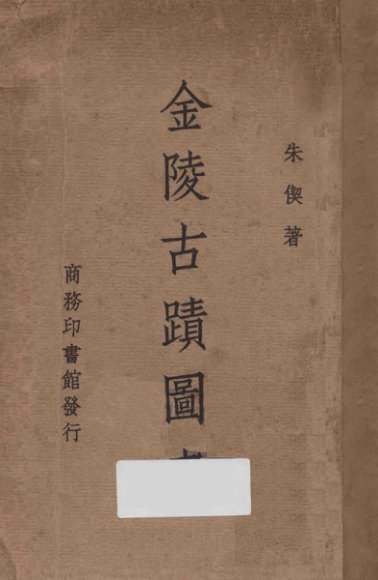 朱偰著
金陵古蹟圖
商務印書館發行